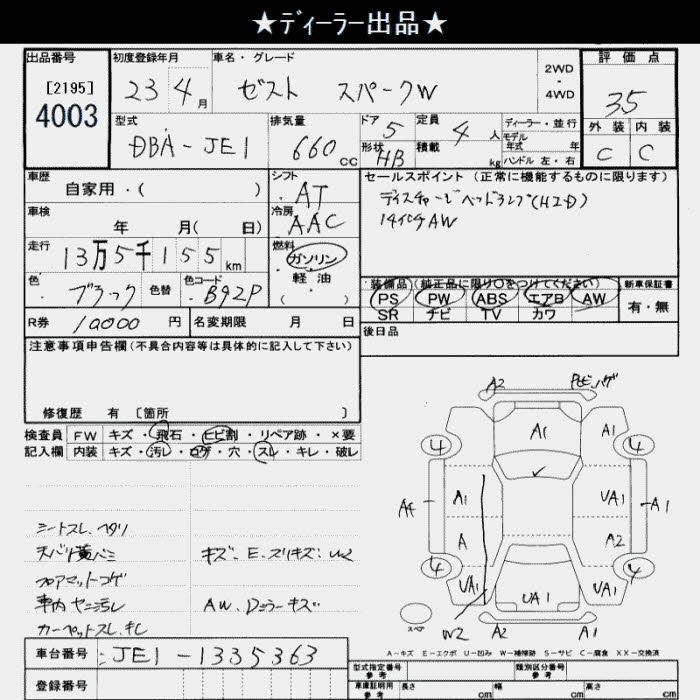 ★ディーラー出品★
出品番号 初度登録年月 車名・グレード 2WD・4WD 評価点
[2195]
4003
23 4月 ゼスト スパークW 35
型式 排気量 ドア 定員 ディーラー・並行
DBA-JE1 660cc 5 4人 モデル年式 年
形状 HB 積載 kg ハンドル 左・右
外装 内装
C C
車歴 自家用・( )
シフト AT
セールスポイント(正常に機能するものに限ります)
ディスチャージヘッドランプ(HID)
14インチAW
車検 年 月( 日)
冷房 AAC
走行 13万5千155km
燃料 ガソリン・軽油・( )
色 ブラック 色替 色コード B92P
装備品(純正品に限り○をつけてください) 新車保証書
PS PW ABS エアB AW 有・無
SR ナビ TV カワ
R券 10000円 名変期限 月 日
後日品
注意事項申告欄(不具合内容等は具体的に記入して下さい)
修復歴 有 [箇所 ]
検査員記入欄
FW キズ・飛石・ヒビ割・リペア跡・×要
内装 キズ・汚レ・コゲ・穴・スレ・キレ・破レ
シートスレ、ヘタリ
天バリ黄バミ キズ・E・スリキズ・W2
フロアマットコゲ
車内ヤニ汚レ AW、Dミラーキズ
カーペットスレ、キレ
A2
A1 A1
4 4
A4 A1 UA1 A1
A A2
4 4
UA1 UA1 UA1
スペア W2 A2 A1
A-キズ E-エクボ U-凹み W-補修跡 S-サビ C-腐食 XX-交換済
車台番号 JE1-1335363
登録番号
型式指定番号 参考 類別区分番号 参考
車庫証明用 参考 長さ cm 幅 cm 高さ cm